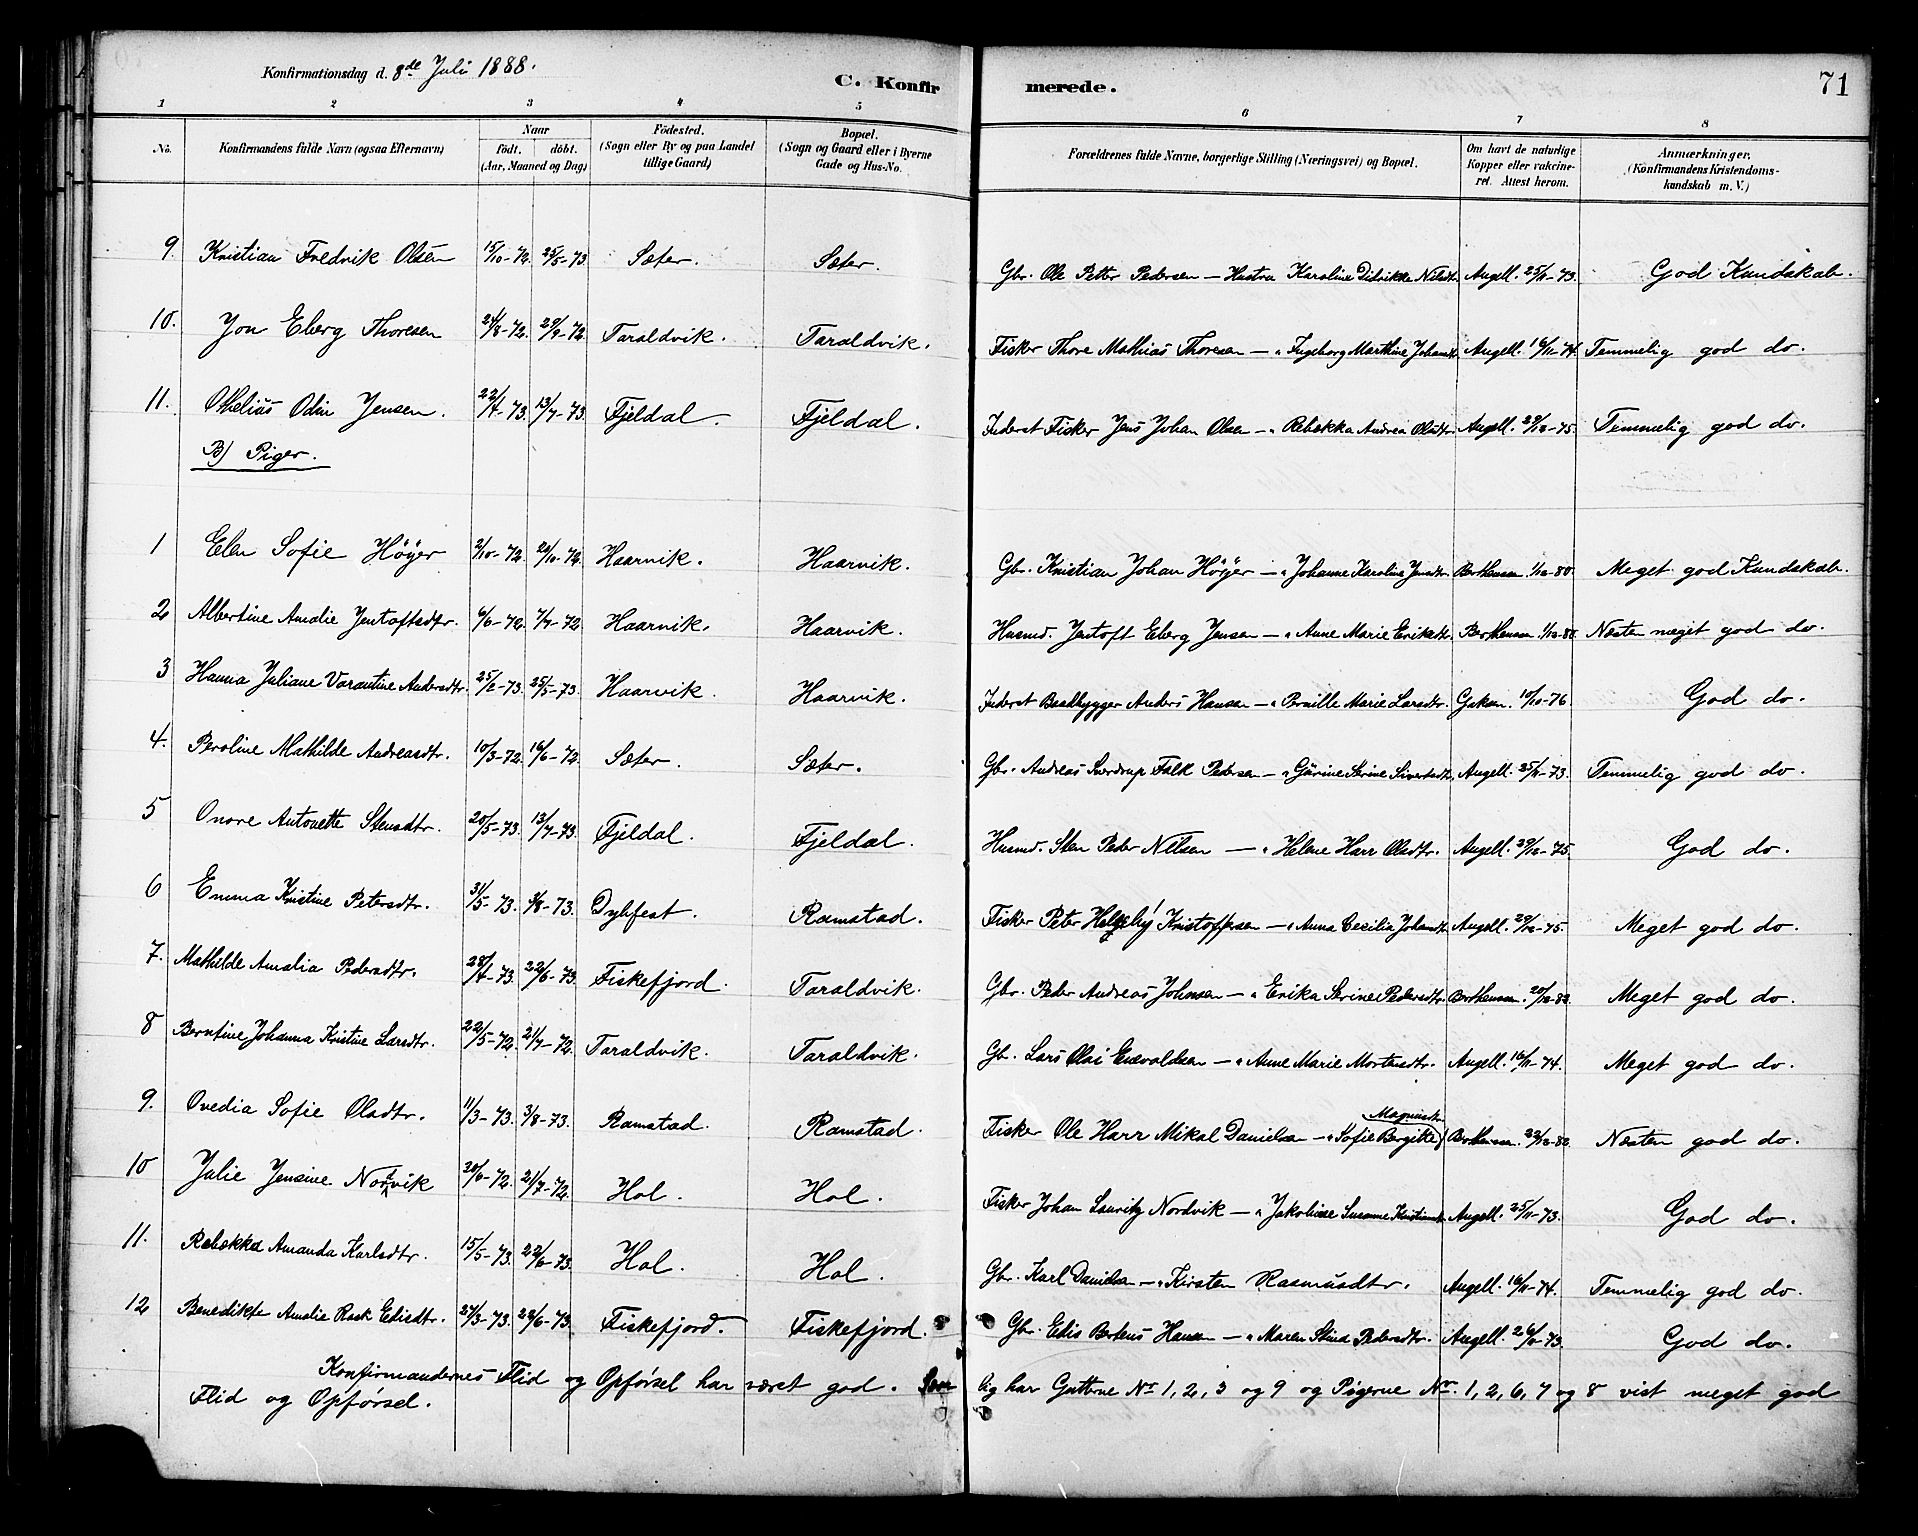 Konfirmationsdag d. 8de Juli 1888.
C. Konfirmerede.
71
1 2 3 4 5 6 7 8
No. Konfirmandens fulde Navn (ogsaa Efternavn) Naar født. døbt. (Aar, Maaned og Dag) Födested. (Sogn eller By og paa Landet tillige Gaard) Bopæl. (Sogn og Gaard eller i Byerne Gade og Hus-No. Forældrenes fulde Navne, borgerlige Stilling (Næringsvei) og Bopæl. Om havt de naturlige Kopper eller vakcineret. Attest herom. Anmærkninger. (Konfirmandens Kristendomskundskab m. V.)
9. Kristian Fredrik Olsen 15/10-72. 25/5-73. Sæter. Sæter. Gbr. Ole Petter Pedersen — Hustru Karoline Didrikke Nilsdtr. Angell. 25/11-73. God Kundskab.
10. Jon Eberg Thoresen 24/8-72. 29/9-72. Taraldvik. Taraldvik. Fisker Thore Mathias Thoresen — " Ingeborg Marthine Johansdtr. Angell. 16/11-74. Temmelig god do.
11. Othelius Odin Jensen. 22/4-73. 13/7-73. Fjeldal. Fjeldal. Inderst Fisker Jens Johan Olsen — " Rebekka Andrea Olsdtr. Angell. 29/12-75. Temmelig god do.
B) Piger.
1 Elen Sofie Höyer 2/10-72. 20/10-72. Haarvik. Haarvik. Gbr. Kristian Johan Höyer — " Johanne Karolina Jensdtr. Berthensen. 1/12-80. Meget god Kundskab.
2 Albertine Amalie Jentoftsdtr. 6/6-72. 7/7-72. Haarvik. Haarvik. Husmd. Jentoft Eberg Jensen — " Anne Marie Eriksdtr. Berthensen. 1/12-80. Næsten meget god do.
3 Hanna Juliane Varantine Andersdtr. 25/2-73. 25/5-73. Haarvik. Haarvik. Inderst Baadbygger Anders Hansen — " Pernille Marie Larsdtr. 10/10-76. God do.
4. Peroline Mathilde Andreasdtr. 10/3-72. 16/6-72. Sæter. Sæter. Gbr. Andreas Sverdrup Falk Pedersen — " Gurine Serine Sivertsdtr. Angell. 25/11-73. Temmelig god do.
5 Onore Antonette Stensdtr. 20/5-73. 13/7-73. Fjeldal. Fjeldal. Husmd. Sten Peder Nilsen — " Helene Harr Olsdtr. Angell. 29/12-75. God do.
6 Emma Kristine Petersdtr. 31/5-73. 3/8-73. Dybfest. Ramstad. Fisker Peter Helgeby Kristoffersen — " Anna Cecilia Johansdtr. Angell. 29/12-75. Meget god do.
7. Mathilde Amalia Pedersdtr. 28/4-73. 22/6-73. Fiskefjord. Taraldvik. Gbr. Peder Andreas Johnsen — " Erika Serine Pedersdtr. Berthensen. 20/12-82. Meget god do.
8 Berntine Johanna Kristine Larsdtr. 22/5-72. 21/7-72. Taraldvik. Taraldvik. Gb. Lars Olai Enevoldsen — " Anne Marie Mortensdtr. Angell. 16/11-74. Meget god do.
9. Ovedia Sofie Olsdtr. 11/3-73. 3/8-73. Ramstad. Ramstad. Fisker Ole Harr Mikal Danielsen — " Sofie Bergitte Magnusdtr. Berthensen. Næsten god do.
10 Julie Jensine Nordvik 20/6-72. 21/7-72. Hol. Hol. Fisker Johan Lauritz Nordvik — " Jakobine Susanne Kristiansdtr. Angell. 25/11-73. God do.
11. Rebekka Amanda Karlsdtr. 15/5-73. 22/6-73. Hol. Hol. Gbr. Karl Danielsen — " Kirsten Rasmusdtr. Angell. 16/11-74. Temmelig god do.
12 Benedikte Amalie Rask Edisdtr. 27/3-73. 28/6-73. Fiskefjord. Fiskefjord. Gbr. Edis Bertens Hansen — " Maren Stina Pedersdtr. Angell. 26/11-73. God do.
Konfirmandernes Flid og Opförsel har været god. Særlig har Gutterne No 1, 2, 3 og 9 og Pigerne No. 1, 2, 6, 7 og 8 vist meget god
Flid og Opförsel.